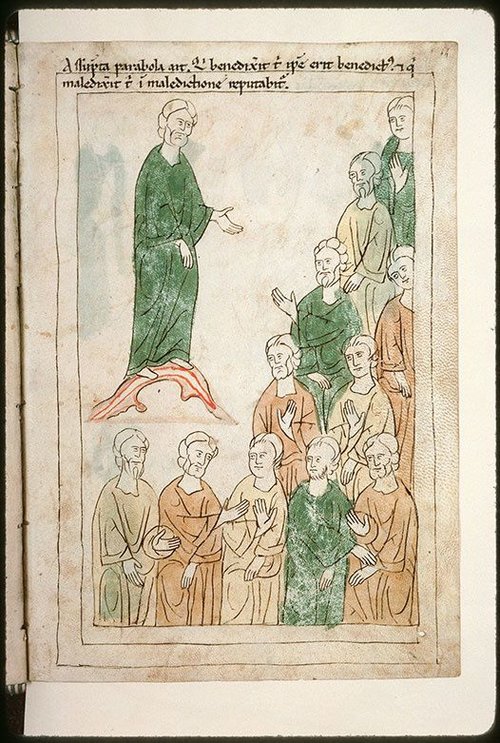 Assūpta parabola ait. Qi benedix̄it tⁱ ip̄e erit benedictꝰ. ⁊ qⁱ
maledix̄it tⁱ ī maledictione reputabit᷑.